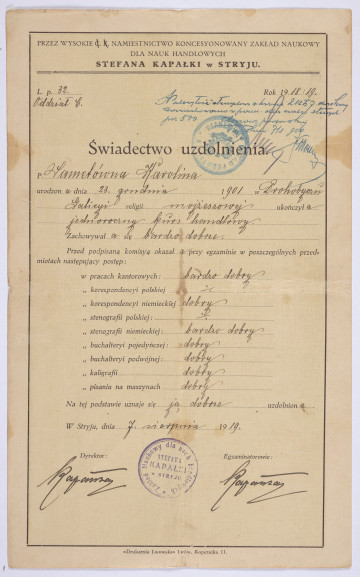 PRZEZ WYSOKIE c. k. NAMIESTNICTWO KONCESYONOWANY ZAKŁAD NAUKOWY
DLA NAUK HANDLOWYCH
STEFANA KAPAŁKI w STRYJU.
L. p. 32
Oddział C.
Rok 1918/19.
Świadectwo uzdolnienia.
P. Hametówna Karolina
urodzona dnia 23. grudnia 1901 Drohobyczu
Galicyi religii mojżeszowej ukończyła
jednoroczny kurs handlowy
Zachowywał a się bardzo dobrze.
Przed podpisaną komisyą okazał a przy egzaminie w poszczególnych przed-
miotach następujący postęp:
w pracach kantorowych: bardzo dobry
„ korespondencyi polskiej
„ korespondencyi niemieckiej dobry
„ stenografii polskiej:
„ stenografii niemieckiej: bardzo dobry
„ buchalteryi pojedyńczej: dobry
„ buchalteryi podwójnej: dobry
„ kaligrafii dobry
„ pisania na maszynach dobry
Na tej podstawie uznaje się ją dobrze uzdolnion ą.
W Stryju, dnia 7 sierpnia 1919.
Dyrektor:
Egzaminatorowie:
STEFANA
KAPAŁKI
w STRYJU
«Drukarnia Lwowska» Lwów, Kopernika 11.